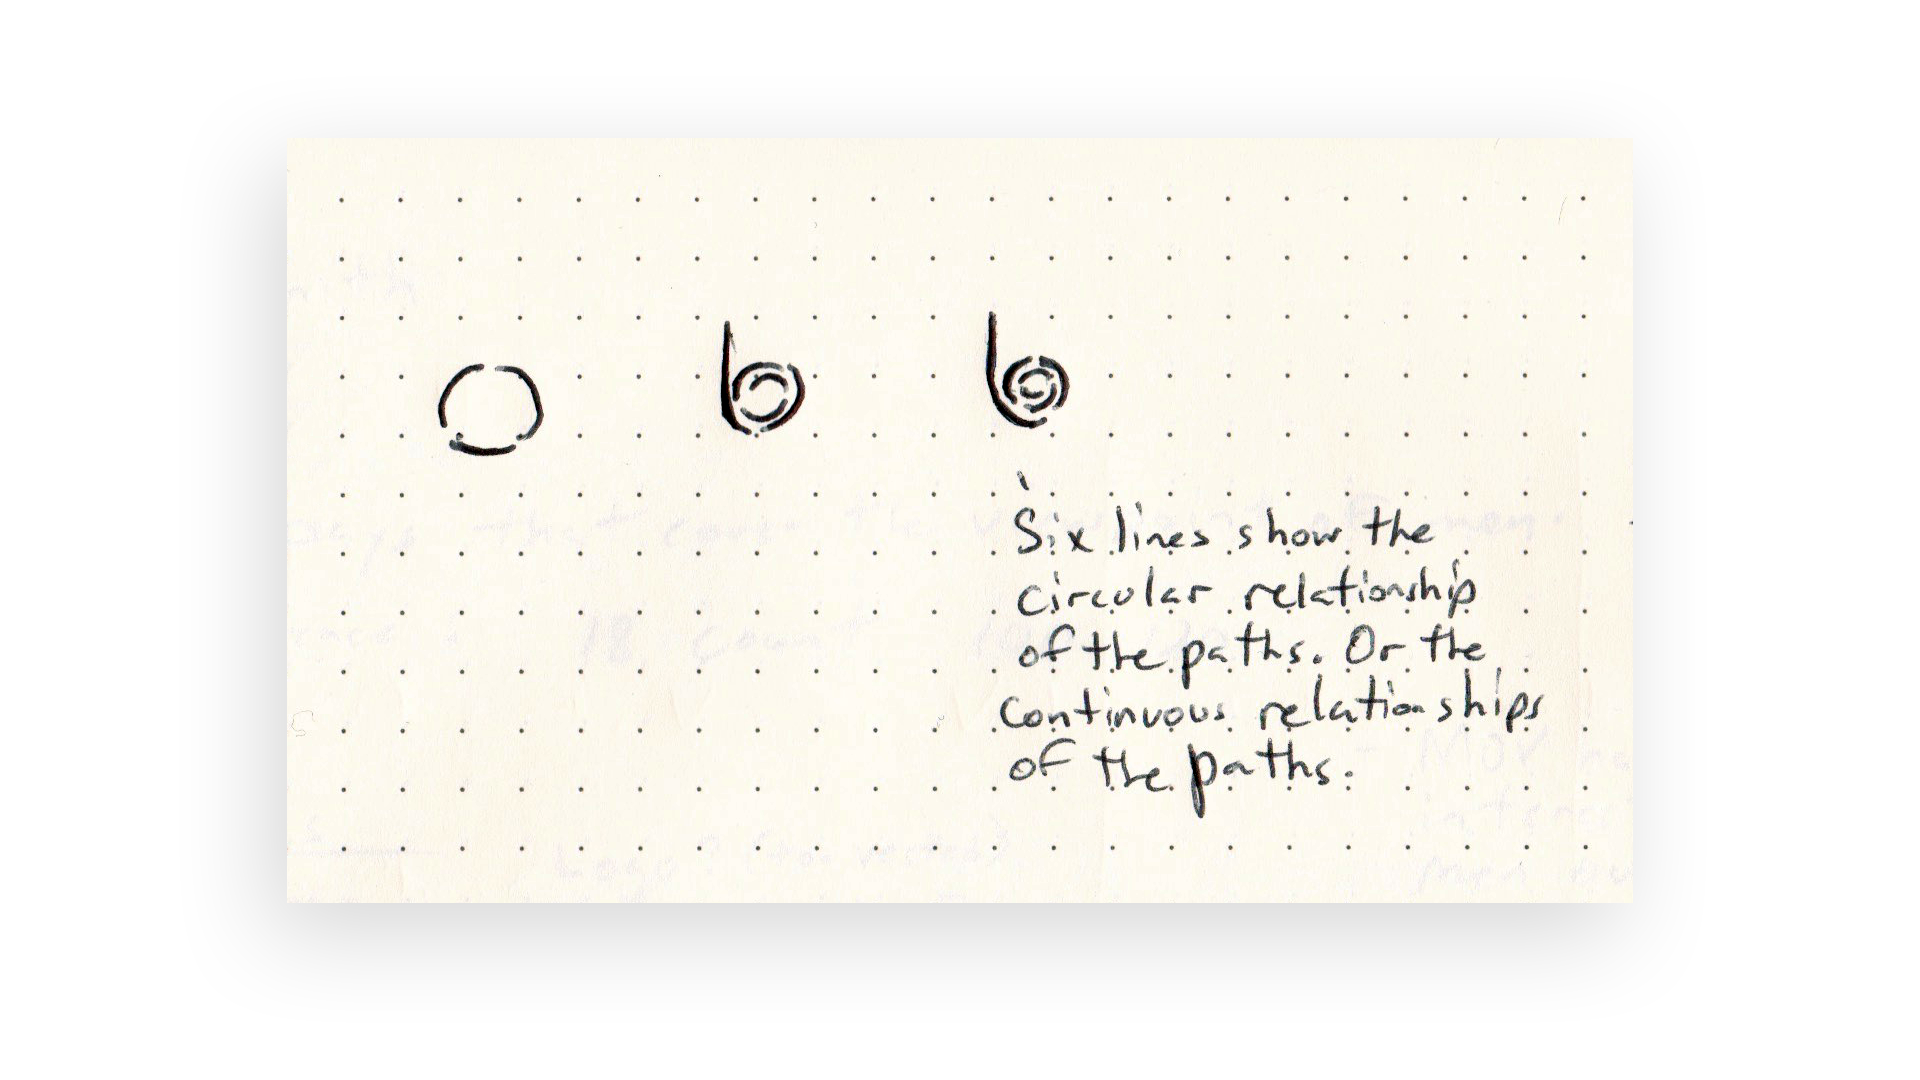 Six lines show the
circular relationship
of the paths. Or the
continuous relationships
of the paths.